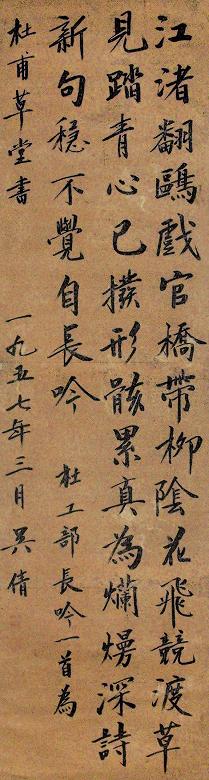 江渚翻鷗戲官橋帶柳陰花飛競渡草
見踏青心已撥形骸累真為爛熳深詩
新句穩不覺自長吟 杜工部長吟一首為
杜甫草堂書 一九五七年三月 吳倩